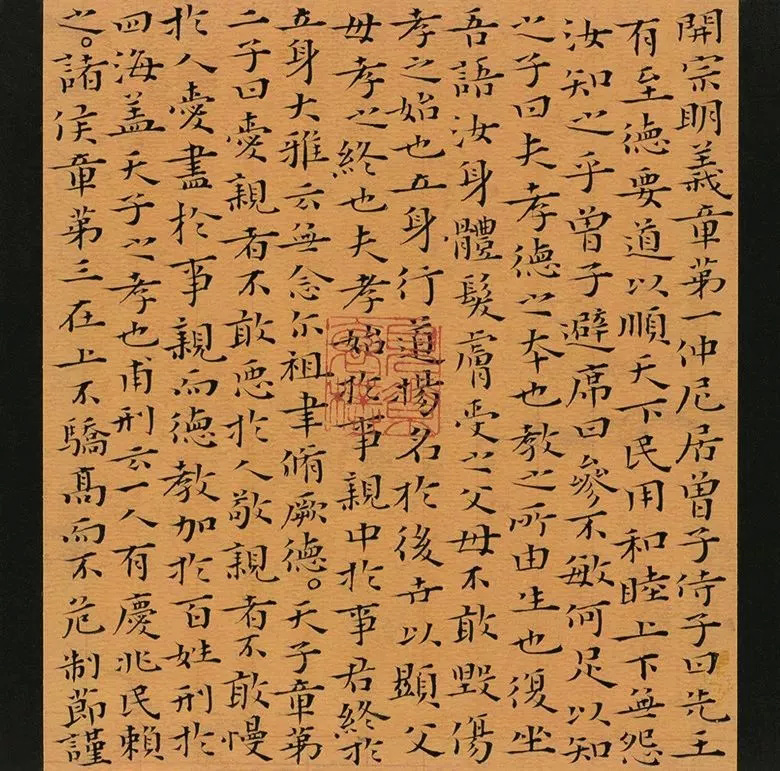 開宗明義章第一仲尼居曾子侍子曰先王
有至德要道以順天下民用和睦上下無怨
汝知之乎曾子避席曰參不敏何足以知
之子曰夫孝德之本也教之所由生也復坐
吾語汝身體髮膚受之父母不敢毀傷
孝之始也立身行道揚名於後世以顯父
母孝之終也夫孝始於事親中於事君終於
立身大雅云無念尒祖聿脩厥德。天子章第
二子曰愛親者不敢惡於人敬親者不敢慢
於人愛盡於事親而德教加於百姓刑於
四海盖天子之孝也甫刑云一人有慶兆民賴
之。諸侯章第三在上不驕高而不危制節謹